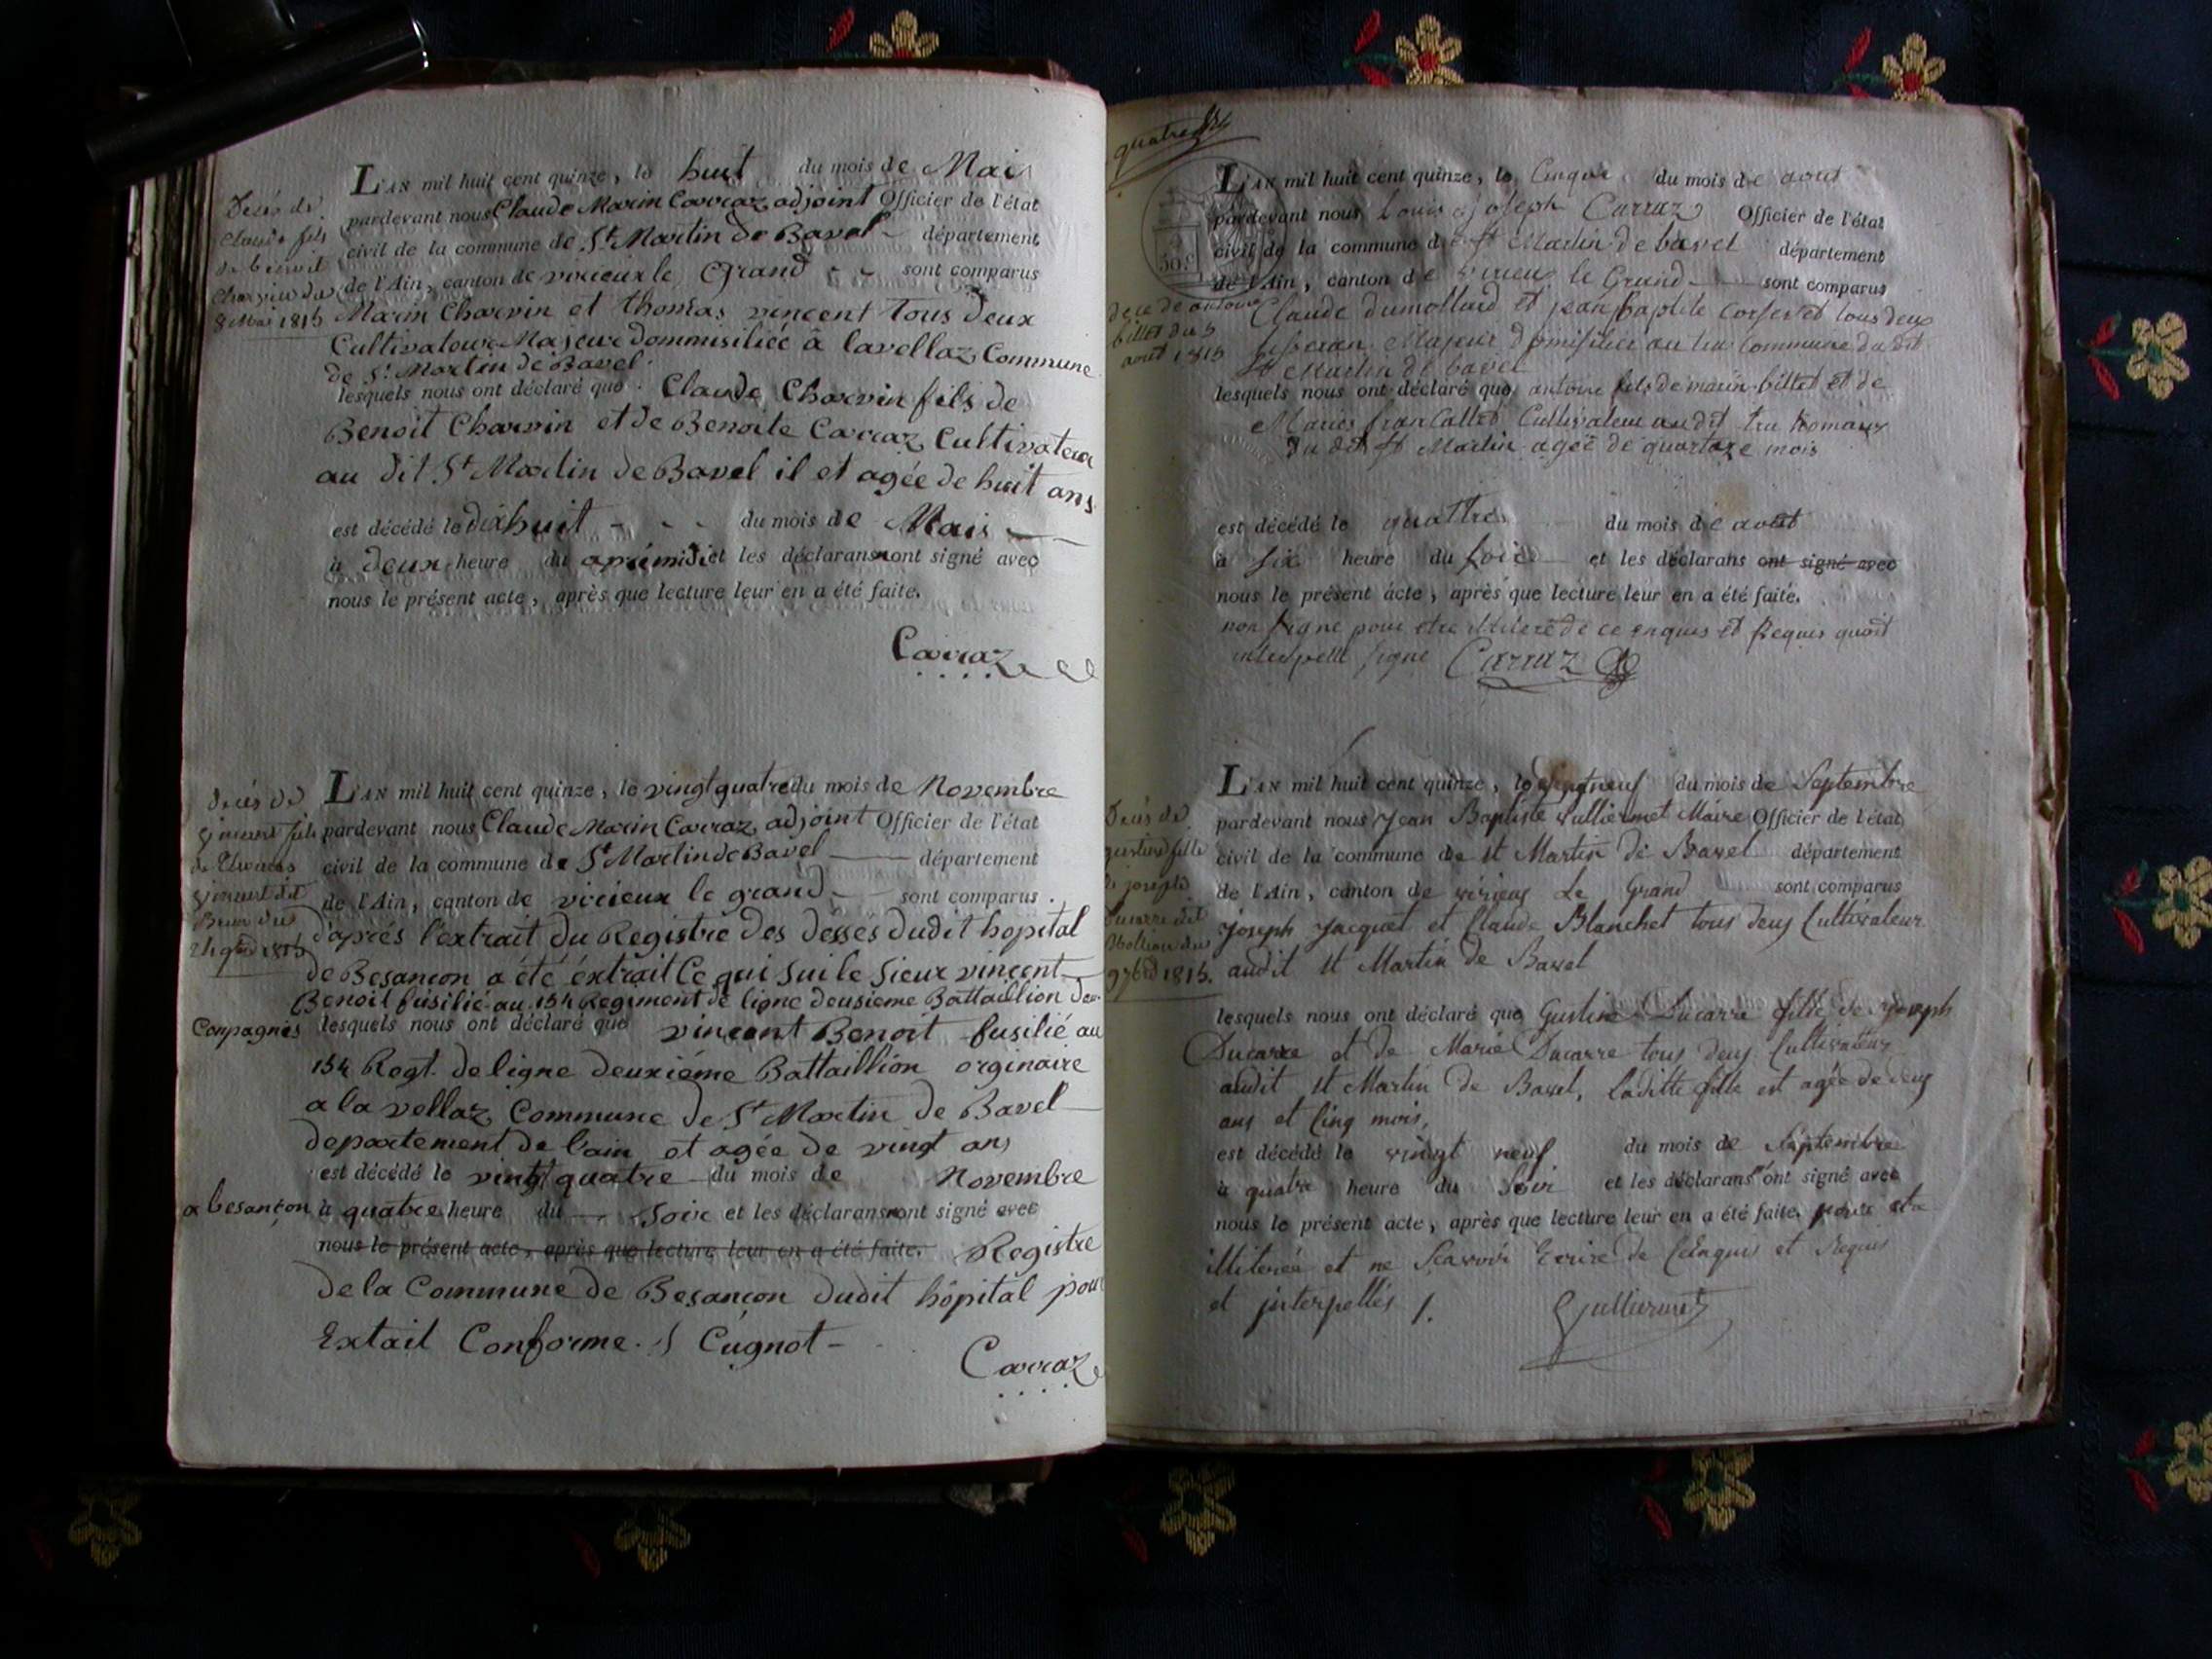 L'AN mil huit cent quinze, le huit du mois de Mai
pardevant nous Claude Marin Carraz adjoint Officier de l'état
civil de la commune de St Martin de Bavel département
de l'Ain, canton de virieux le Grand sont comparus
Marin Charvin et thomas vincent tous deux
Cultivateur Majeur dommisiliéé à lavellaz Commune
de St Martin de Bavel
lesquels nous ont déclaré que Claude Charvin fils de
Benoit Charvin et de Benoite Carraz Cultivateur
au dit St Martin de Bavel il et agée de huit ans
est décédé le dixhuit du mois de Mais
à deux heure du aprémidi et les déclarans ont signé avec
nous le présent acte, après que lecture leur en a été faite.
Carraz
Decés de
Claude fils
de benoit
charvin du
8 Mai 1815
L'AN mil huit cent quinze, le vingt quatre du mois de Novembre
pardevant nous Claude Marin Carraz adjoint Officier de l'état
civil de la commune de St Martin de Bavel département
de l'Ain, canton de virieux le grand sont comparus
d'aprés l'extrait du Registre des désses dudit hopital
de Besançon a été éxtrait Ce qui Sui le Sieux vincent
Benoit fusilié au 154 Regiment de ligne deusieme Battaillion
Conpagnies lesquels nous ont déclaré que vincent Benoit fusilié au
154 Regt. de ligne deuxiéme Battaillion orginaire
a la vellaz Commune de St Martin de Bavel
departement de lain et agée de vingt ans
est décédé le vingt quatre du mois de Novembre
a besançon à quatre heure du Soir et les déclarans ont signé avec
nous le présent acte, après que lecture leur en a été faite. Registre
de la Commune de Besançon dudit hôpital pour
Extait Conforme. S Cugnot
Carraz
Decés de
vincent fils
de Thomas
vincent dit
24 9bre 1815
quatre
L'AN mil huit cent quinze, le Cinque du mois de aout
pardevant nous Louis joseph Carraz Officier de l'état
civil de la commune de St Martin de bavel département
de l'Ain, canton de virieu le Grand sont comparus
Claude dumollard et jean baptiste tous deux
Majeur domisiliée au commune du dit
St Martin de bavel
lesquels nous ont déclaré que antoine fils de marin billet et de
Cultivateur audit
du dit St Martin agéé de quartoze mois
est décédé le quattre du mois de aout
à six heure du soir et les déclarans ont signé avec
nous le présent acte, après que lecture leur en a été faite.
non signe pour etre de ce enquis et Requis quoit
signe Carraz
dece de antoine
billet du 5
aout 1815
L'AN mil huit cent quinze, le vingt neuf du mois de Septembre
pardevant nous Jean Baptiste Julliermet Maire Officier de l'état
civil de la commune de st Martin de Bavel département
de l'Ain, canton de virieux Le Grand sont comparus
joseph jacquet et Claude Blanchet tous deux Cultivateur
audit st Martin de Bavel
lesquels nous ont déclaré que Gustine Ducarre fille de Joseph
Ducarre et de Marie Ducarre tous deux Cultivateur
audit st Martin de Bavel, laditte fille est agée de deux
ans et Cinq mois,
est décédé le vingt neuf du mois de Septembre
à quatre heure du Soir et les déclarans ont signé avec
nous le présent acte, après que lecture leur en a été faite. pour etre
illiteréa et ne Scavoir Ecrire de Enquis et Requis
et interpellés /. Julliermet
Decés de
gustine fille
de joseph
ducarre dit
7bre 1815.